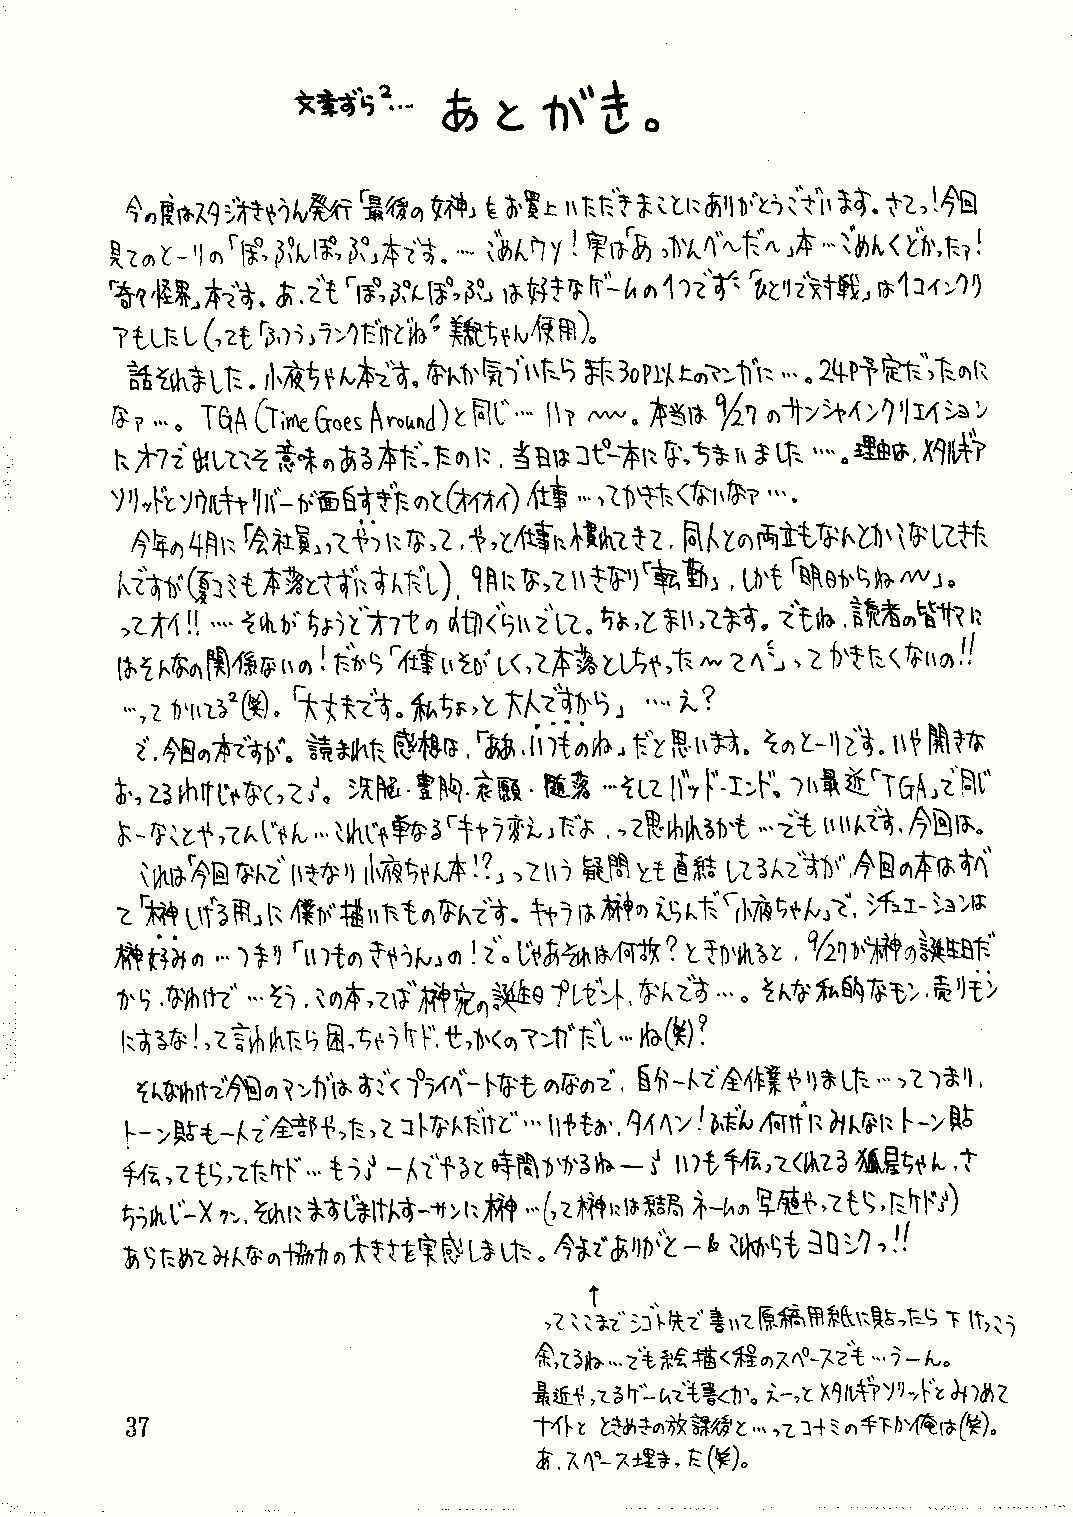 文章ずら²… あとがき。
今の度はスタジオきゃうん発行「最後の女神」をお買上いただきまことにありがとうございます。さてっ!今回
見てのとーりの「ぽっぷんぽっぷ」本です。…ごめんウソ!実は「あっかんべ〜だ〜」本…ごめんくどかったァ!
「奇々怪界」本です。あ、でも「ぽっぷんぽっぷ」は好きなゲームの1つです「ひとりで対戦」は1コインクリ
アもしたし(っても「ふつう」ランクだけどね 美紀ちゃん使用)。
話それました。小夜ちゃん本です。なんか気づいたらまた30P以上のマンガに…。24P予定だったのに
なァ…。TGA(Time Goes Around)と同じ…ハァ〜〜。本当は9/27のサンシャインクリエイション
にオフで出してこそ意味のある本だったのに、当日はコピー本になっちまいました…。理由は、メタルギア
ソリッドとソウルキャリバーが面白すぎたのと(オイオイ)仕事…ってかきたくないなァ…。
今年の4月に「会社員」ってやつになって、やっと仕事に慣れてきて、同人との両立もなんとかこなしてきた
んですが(夏コミも本落とさずにすんだし)、9月になっていきなり「転勤」、しかも「明日からね〜」。
ってオイ!!…それがちょうどオフセの〆切ぐらいでして。ちょっとまいってます。でもね、読者の皆サマに
はそんなの関係ないの!だから「仕事いそがしくって本落としちゃった〜てへ」ってかきたくないの!!
…ってかいてる²(笑)。「大丈夫です。私ちょっと大人ですから」…え?
で、今回の本ですが。読まれた感想は、「ああ、いつものね」だと思います。そのとーりです。いや開きな
おってるわけじゃなくって♪。洗脳・豊胸・哀願・堕落…そしてバッド・エンド。つい最近「TGA」で同じ
よーなことやってんじゃん…これじゃ単なる「キャラ変え」だよ、って思われるかも…でもいいんです、今回は。
これは「今回なんでいきなり小夜ちゃん本!?」っていう疑問とも直結してるんですが、今回の本はすべ
て「榊しげる用」に僕が描いたものなんです。キャラは榊のえらんだ「小夜ちゃん」で、シチュエーションは
榊好みの…つまり「いつものきゃうん」の!で。じゃあそれは何故?ときかれると、9/27が榊の誕生日だ
から、なわけで…そう、この本ってば榊宛の誕生日プレゼント、なんです…。そんな私的なモン、売りモン
にするな!って言われたら困っちゃうケド、せっかくのマンガだし…ね(笑)?
そんなわけで今回のマンガはすごくプライベートなものなので、自分一人で全作業やりました…ってつまり、
トーン貼も一人で全部やったってコトなんだけど…いやもお、タイヘン!ふだん何げにみんなにトーン貼
手伝ってもらってたケド…もう♪一人でやると時間かかるねー♪いつも手伝ってくれてる狐星ちゃん、さ
ちうれじーXクン、それにますじまけんすーサンに榊…(って榊には結局ネームの写植やってもらったケド♪)
あらためてみんなの協力の大きさを実感しました。今までありがとー&これからもヨロシクっ!!
↑
ってここまでシゴト先で書いて原稿用紙に貼ったら下けっこう
余ってるね…でも絵描く程のスペースでも…うーん。
最近やってるゲームでも書くか。えーっとメタルギアソリッドとみつめて
ナイトとときめきの放課後と…ってコナミの手下か俺は(笑)。
あ、スペース埋まった(笑)。
37